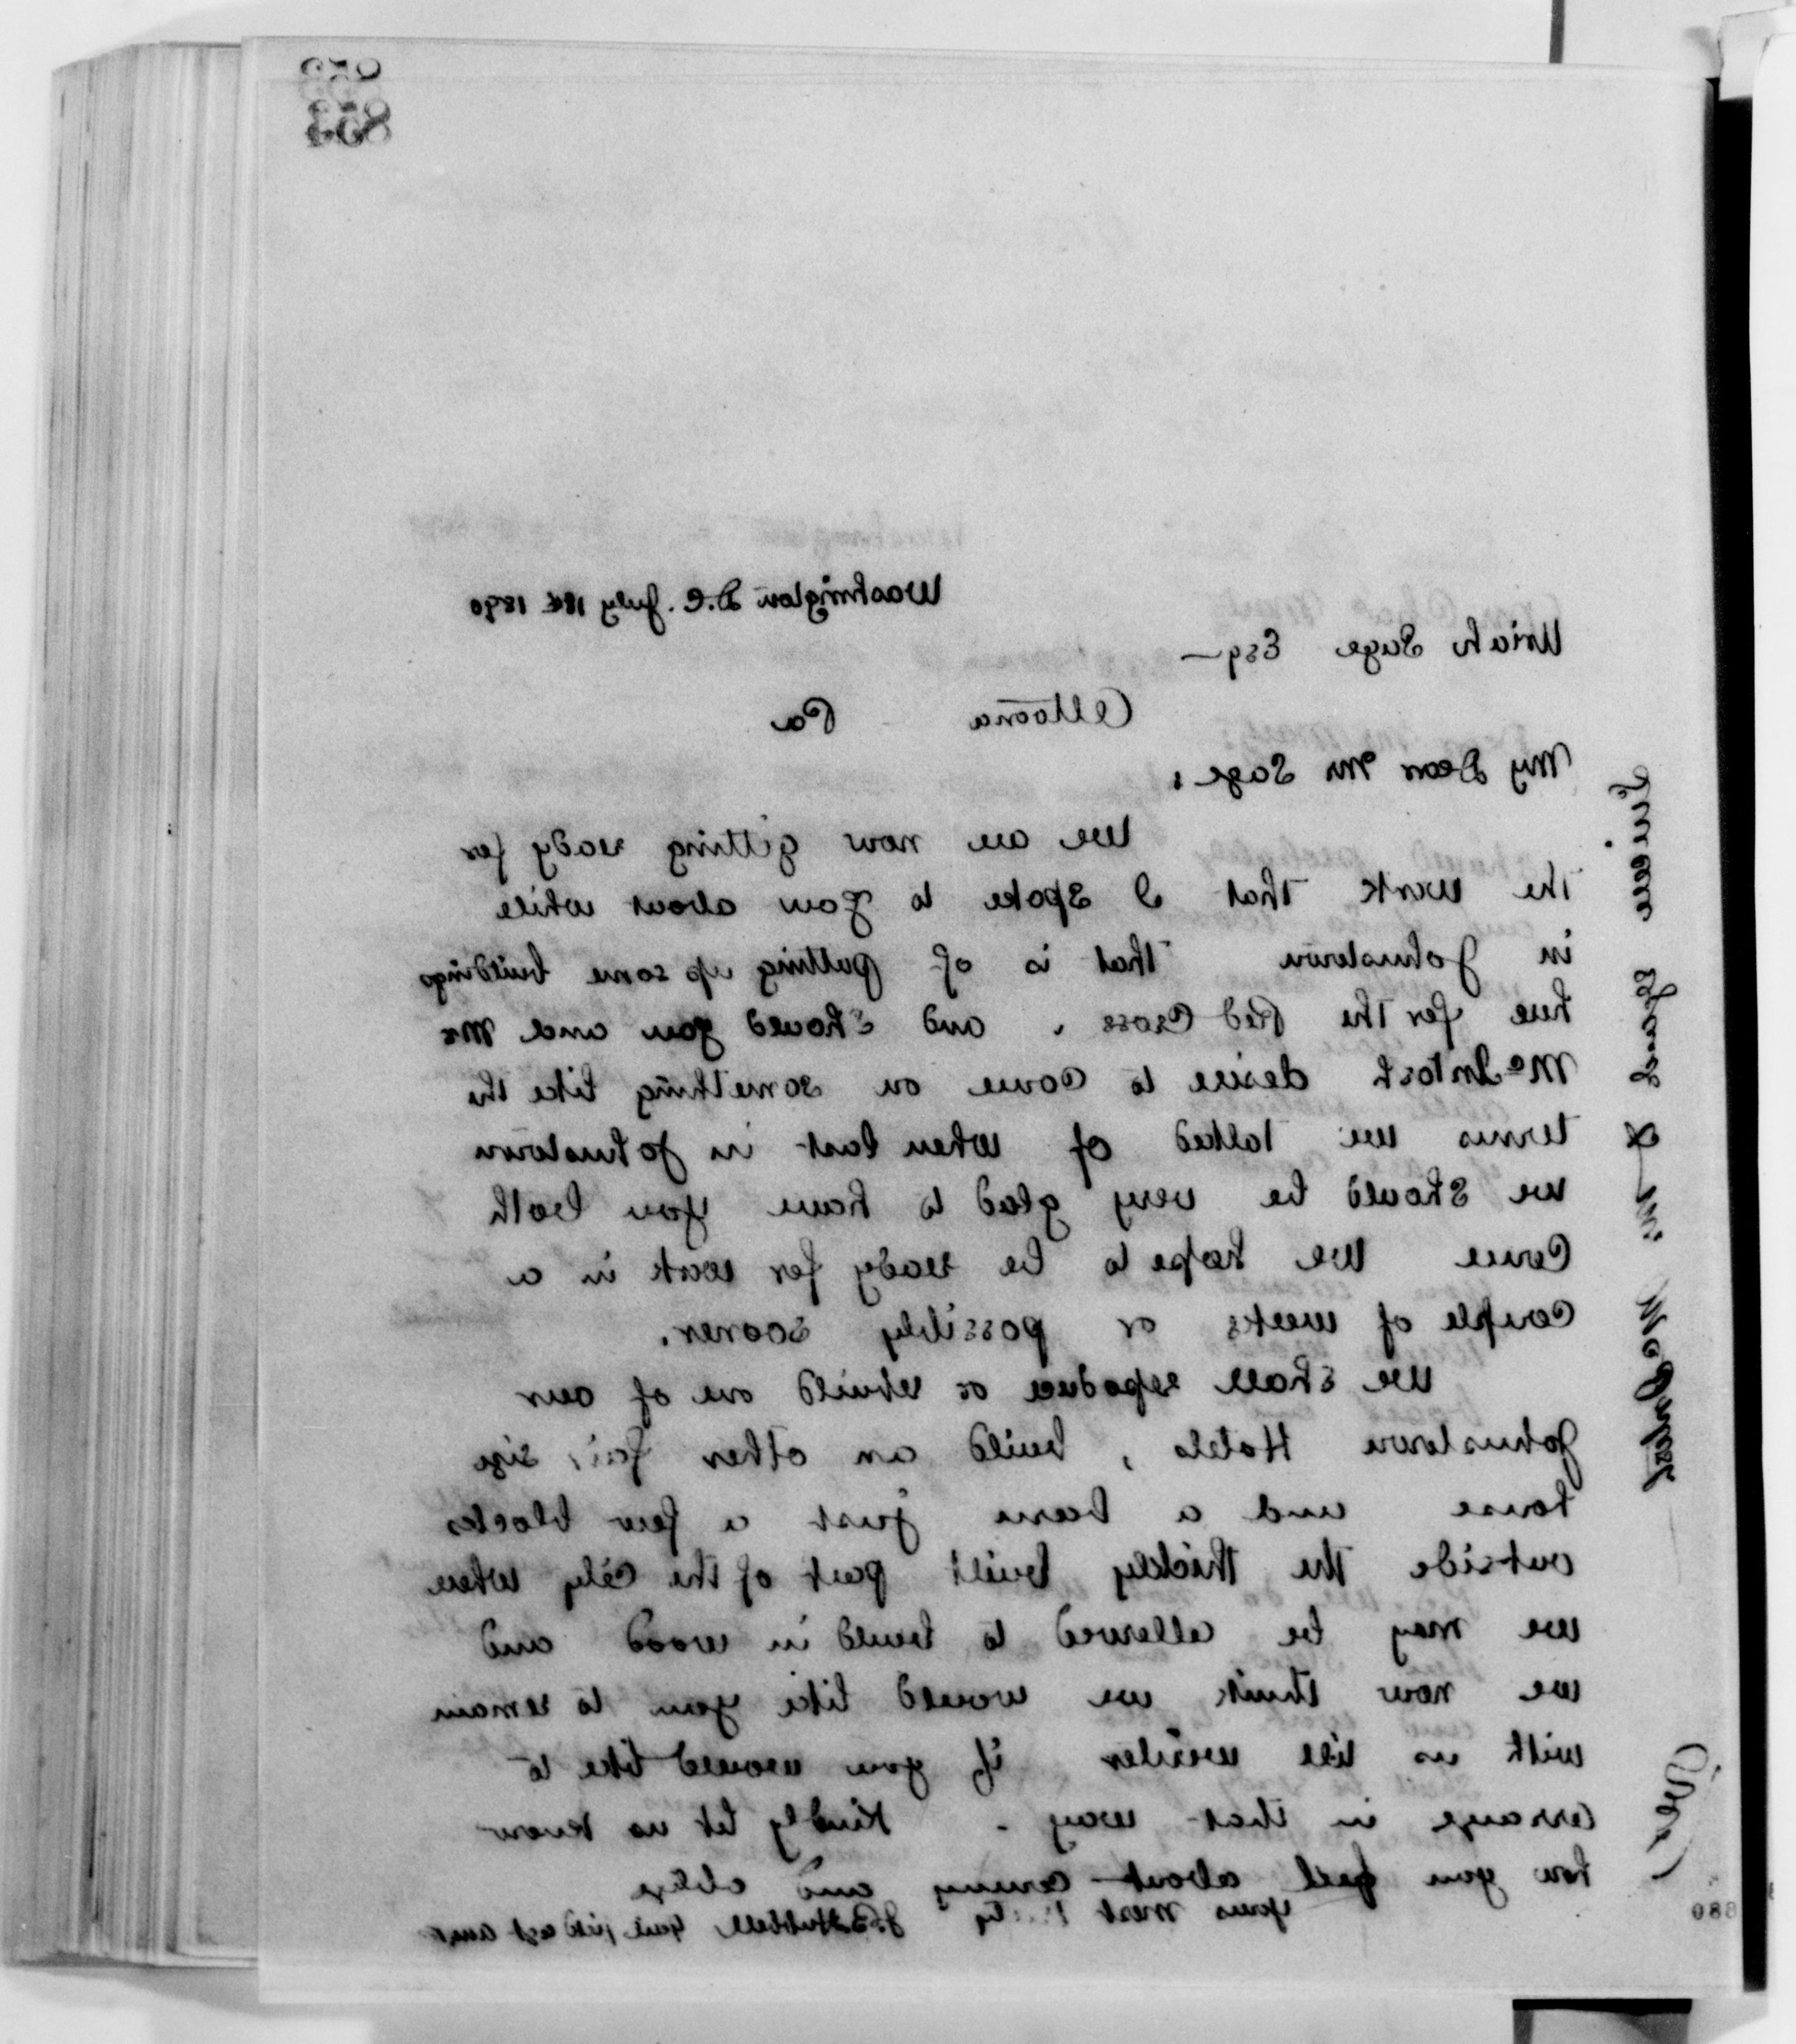 853
853
Washington D.C. July 18th 1890
Uriah Sage Esq—
Altoona Pa
My Dear Mr Sage,
We are now getting ready for
the work that I spoke to you about while
in Johnstown that is of putting up some buildings
here for the Red Cross, and should you and Mr
McIntosh desire to come on something like the
terms we talked of when last in Johnstown
we should be very glad to have you both
come We hope to be ready for work in a
couple of weeks or possibly sooner.
We shall reproduce or rebuild one of our
Johnstown Hotels, build an other fair size
house and a barn just a few blocks
outside the thickly built part of the city where
we may be allowed to build in wood and
we now think we would like you to remain
with us till winter if you would like to
arrange in that way. Kindly let us know
how you feel about coming and oblige
Yours most
J.B. Hubbell Genl field agt
Sage & McIntosh
(Over)
680